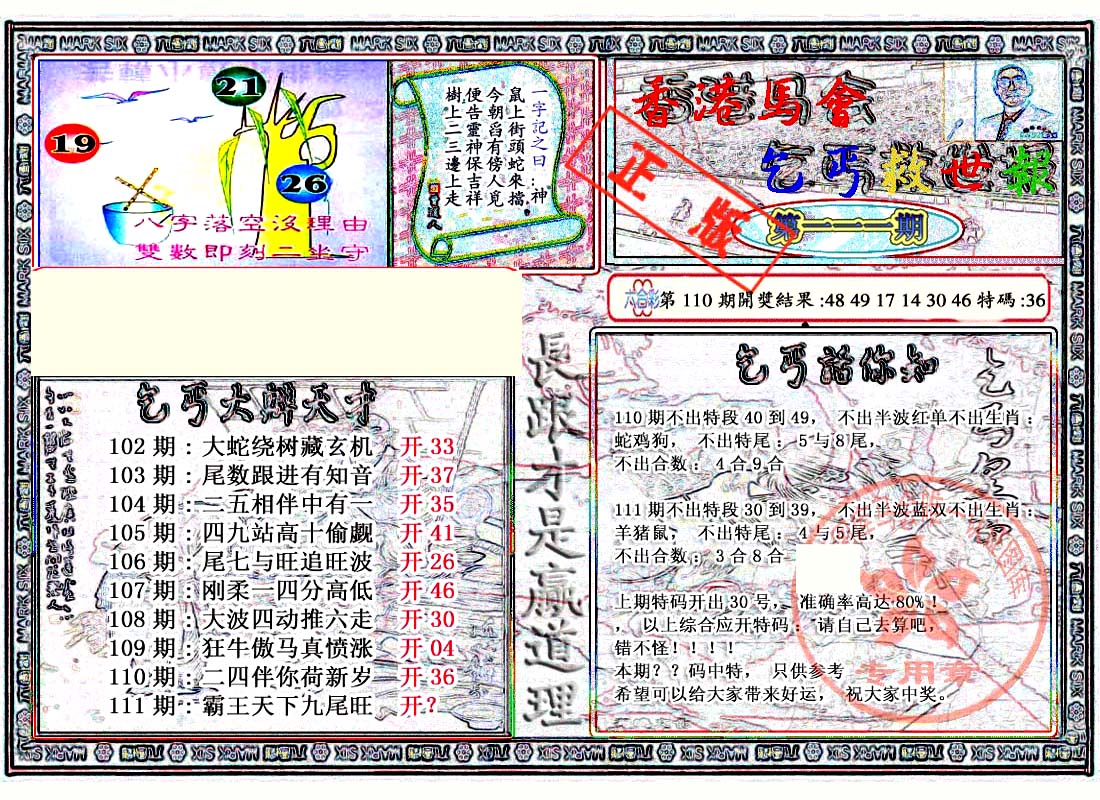 六合彩 MARK SIX
21
19
26
八字落空沒理由
雙數即刻二坐守
一字記之曰：神
鼠上街頭蛇來擋
今朝舀有傍人竟
便告靈神保吉祥
樹上二三邊上走
曾道人
香港馬會
乞丐救世報
第一一一期
正版
六合彩 第 110 期開獎結果 :48 49 17 14 30 46 特碼 :36
長跟才是贏道理
乞丐大牌天才
102 期：大蛇绕树藏玄机 开 33
103 期：尾数跟进有知音 开 37
104 期：二五相伴中有一 开 35
105 期：四九站高十偷觑 开 41
106 期：尾七与旺追旺波 开 26
107 期：刚柔一四分高低 开 46
108 期：大波四动推六走 开 30
109 期：狂牛傲马真愤涨 开 04
110 期：二四伴你荷新岁 开 36
111 期：霸王天下九尾旺 开?
乞丐話你知
110 期不出特段 40 到 49， 不出半波红单不出生肖：
蛇鸡狗， 不出特尾： 5 与 8 尾,
不出合数： 4 合 9 合
111 期不出特段 30 到 39， 不出半波蓝双不出生肖：
羊猪鼠， 不出特尾： 4 与 5 尾,
不出合数： 3 合 8 合
上期特码开出 30 号， 准确率高达 80%！
， 以上综合应开特码： 请自己去算吧,
错不怪！！！！
本期？？码中特， 只供参考
希望可以给大家带来好运， 祝大家中奖。
专用章